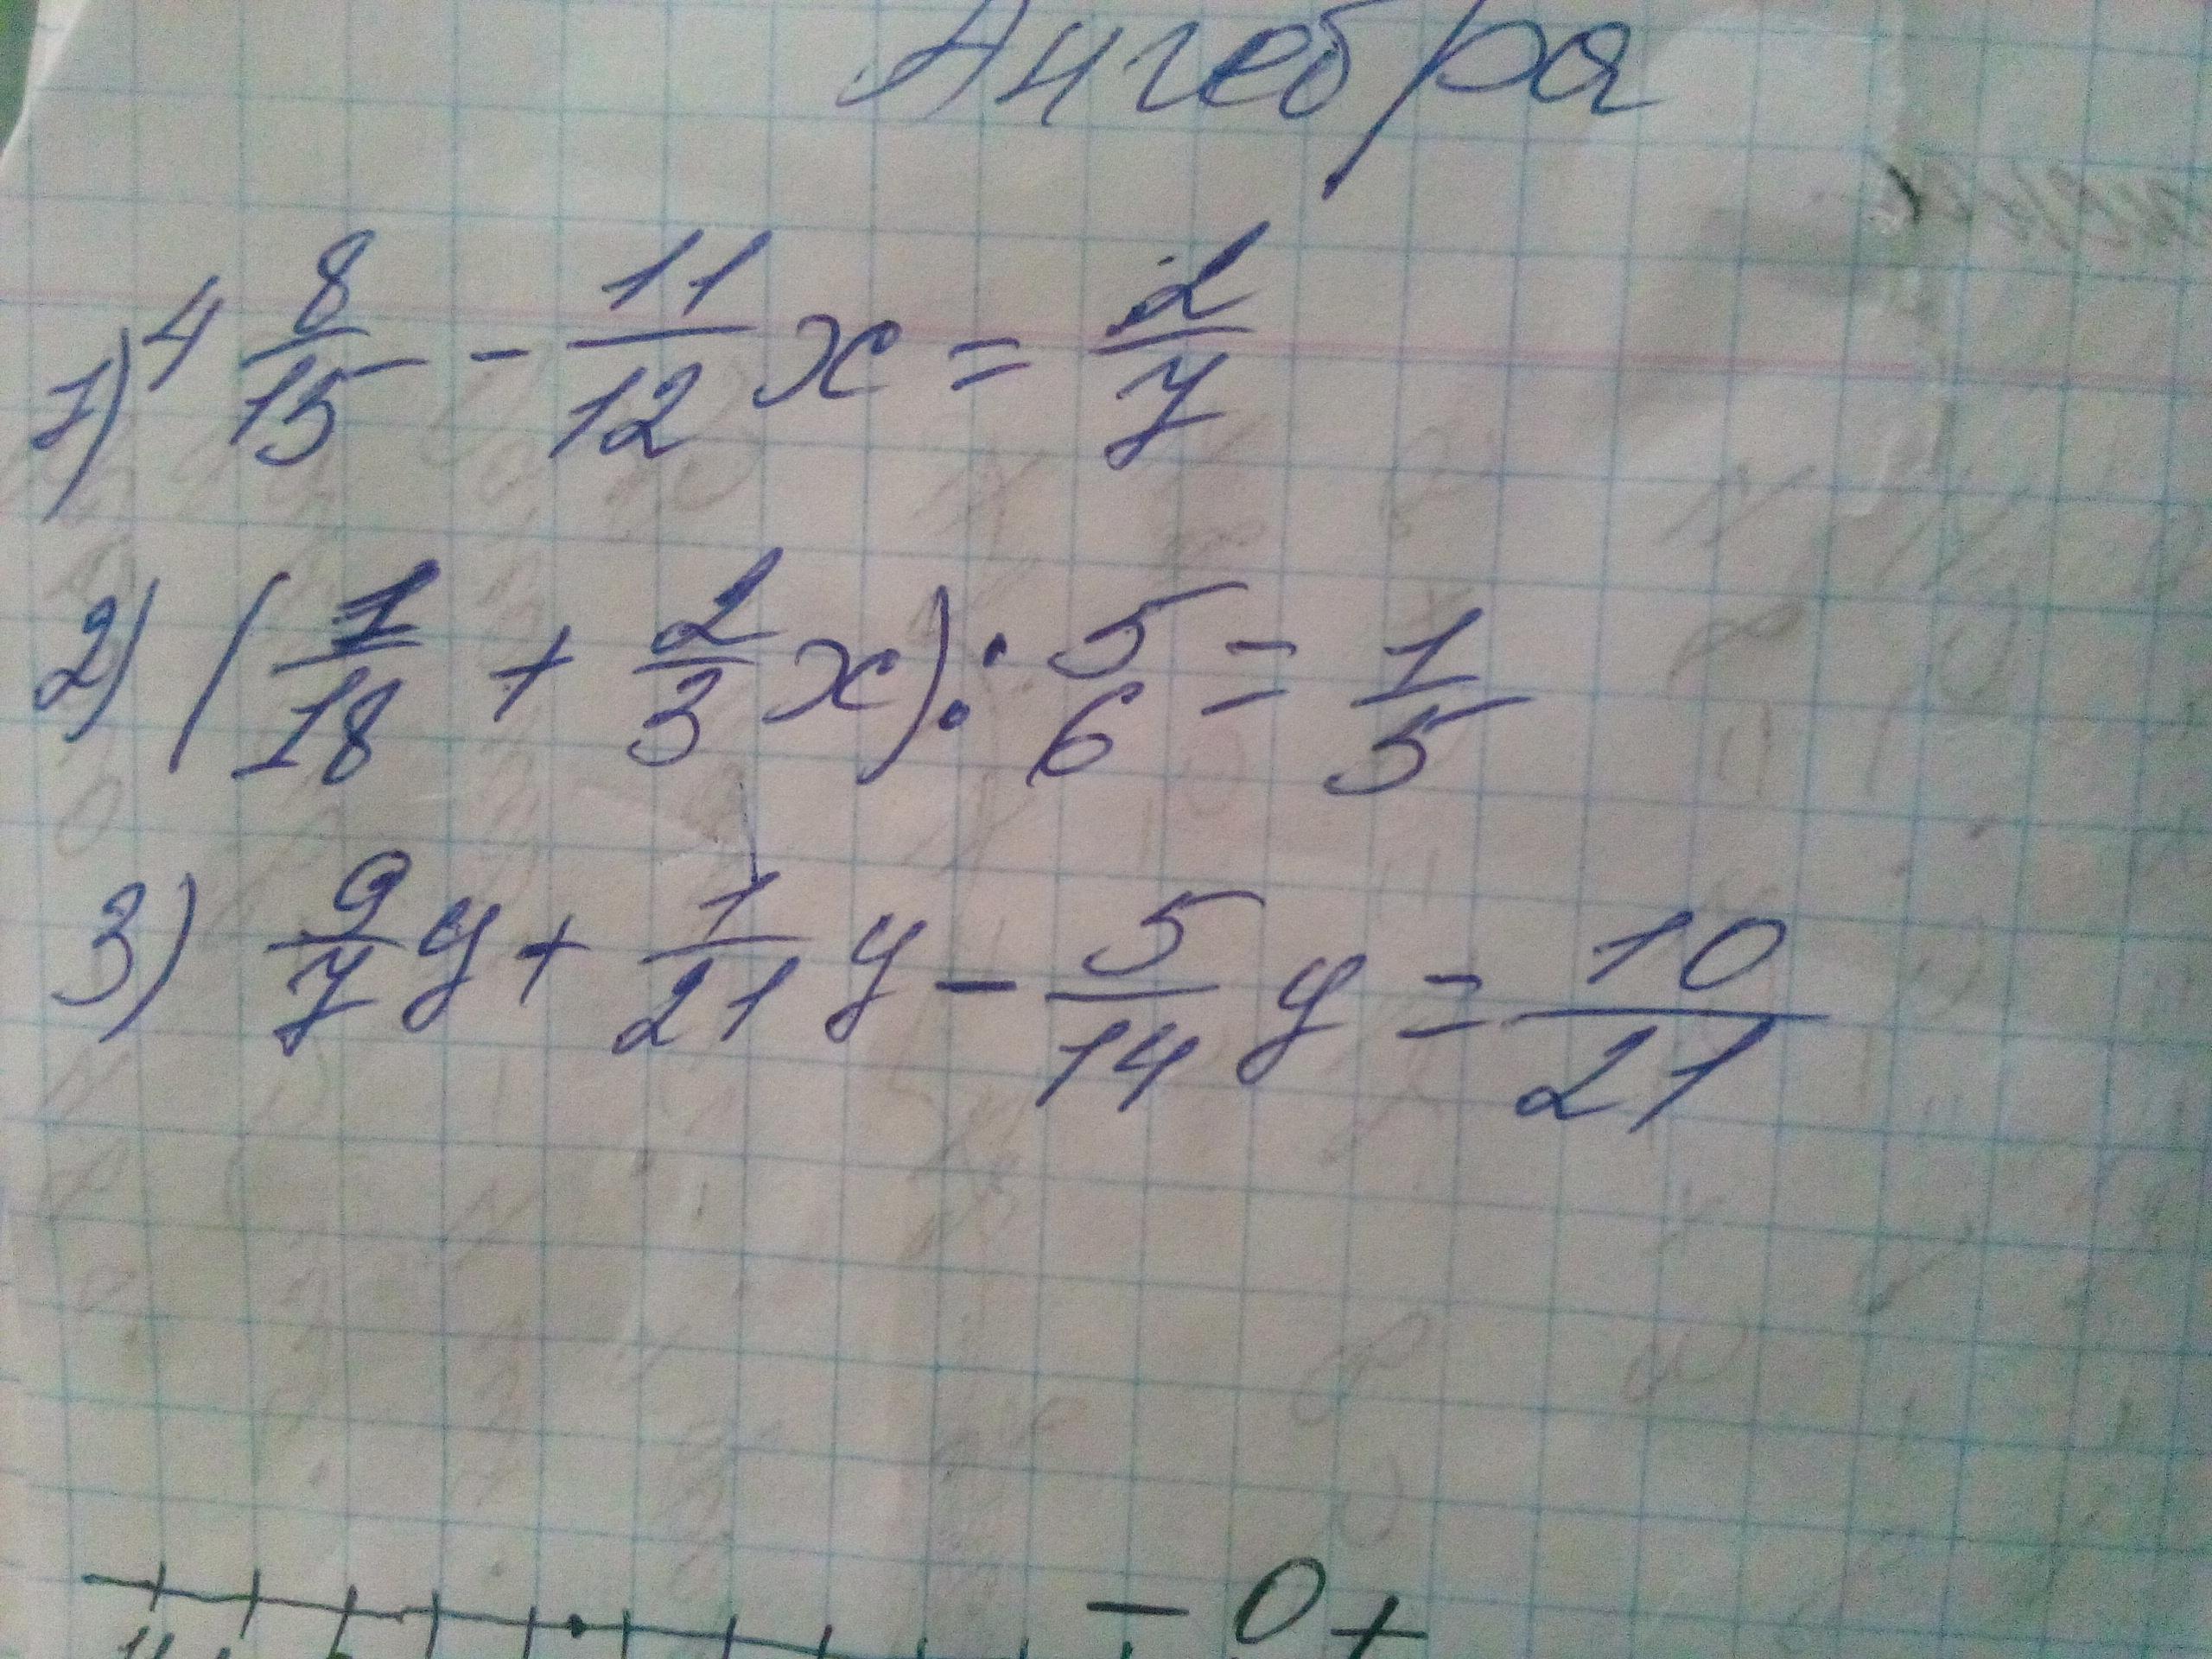 Алгебра
1) 4 8/15 - 11/12 x = 2/7
2) (1/18 + 2/3 x) : 5/6 = 1/5
3) 9/7 y + 1/21 y - 5/14 y = 10/21
- 0 +